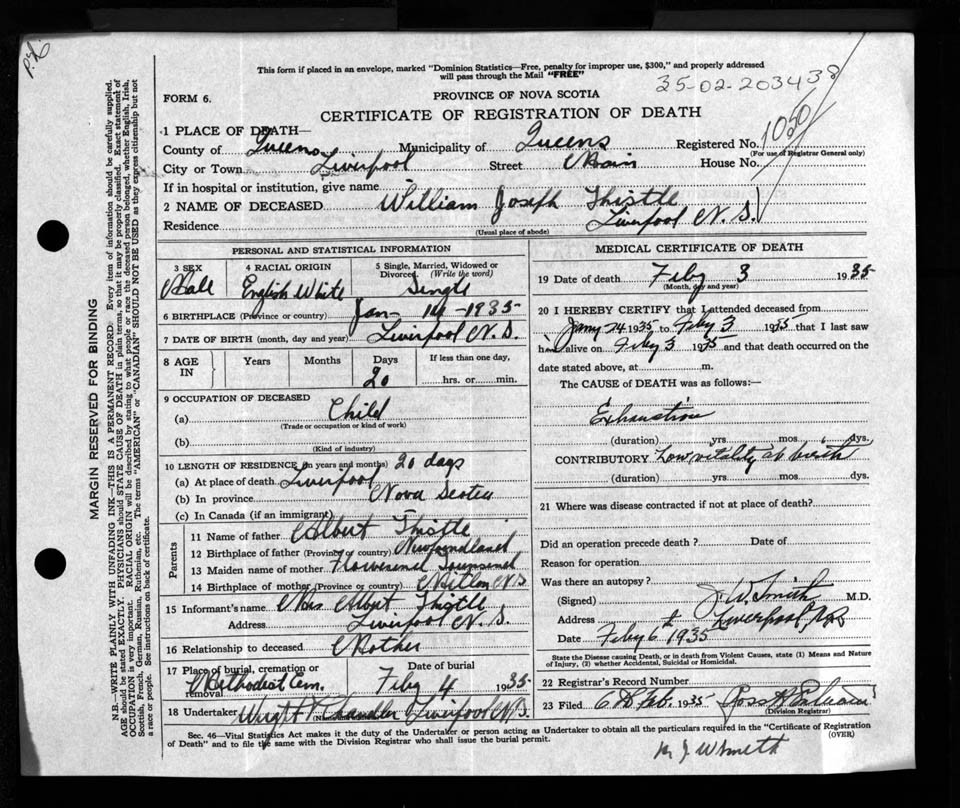 P.L.
This form if placed in an envelope, marked "Dominion Statistics—Free, penalty for improper use, $300," and properly addressed
will pass through the Mail "FREE"
35-02-203438
PROVINCE OF NOVA SCOTIA
FORM 6.
CERTIFICATE OF REGISTRATION OF DEATH
1 PLACE OF DEATH—
County of Queens Municipality of Queens Registered No. 1050
(For use of Registrar General only)
City or Town Liverpool Street Main House No.
If in hospital or institution, give name
2 NAME OF DECEASED William Joseph Thistle
Residence Liverpool N.S.
(Usual place of abode)
PERSONAL AND STATISTICAL INFORMATION
3 SEX Male
4 RACIAL ORIGIN English White
5 Single, Married, Widowed or Divorced (Write the word) Single
6 BIRTHPLACE (Province or country) Jan 14-1935
7 DATE OF BIRTH (month, day and year) Liverpool N.S.
8 AGE IN Years Months Days 20 If less than one day, hrs. or min.
9 OCCUPATION OF DECEASED
(a) Child
(Trade or occupation or kind of work)
(b)
(Kind of industry)
10 LENGTH OF RESIDENCE (in years and months) 20 days
(a) At place of death Liverpool
(b) In province Nova Scotia
(c) In Canada (if an immigrant)
Parents
11 Name of father Albert Thistle
12 Birthplace of father (Province or country) Newfoundland
13 Maiden name of mother Townsend
14 Birthplace of mother (Province or country) Milton N.S.
15 Informant's name Mrs Albert Thistle
Address Liverpool N.S.
16 Relationship to deceased Mother
17 Place of burial, cremation or removal Methodist Cem. Date of burial Feby 4 1935
18 Undertaker Wright Chandler Liverpool N.S.
MEDICAL CERTIFICATE OF DEATH
19 Date of death Feby 3 1935
(Month, day and year)
20 I HEREBY CERTIFY that I attended deceased from
Jany 24 1935 to Feby 3 1935 that I last saw
him alive on Feby 3 1935 and that death occurred on the
date stated above, at m.
The CAUSE of DEATH was as follows:—
Exhaustion
(duration) yrs. mos. dys.
CONTRIBUTORY Low vitality at birth
(duration) yrs. mos. dys.
21 Where was disease contracted if not at place of death?
Did an operation precede death? Date of
Reason for operation
Was there an autopsy?
(Signed) J.W. Smith M.D.
Address Liverpool, N.S.
Date Feby 6th 1935
State the Disease causing Death, or in death from Violent Causes, state (1) Means and Nature
of Injury, (2) whether Accidental, Suicidal or Homicidal.
22 Registrar's Record Number
23 Filed 6th Feb. 1935
(Division Registrar)
Sec. 46—Vital Statistics Act makes it the duty of the Undertaker or person acting as Undertaker to obtain all the particulars required in the "Certificate of Registration
of Death" and to file the same with the Division Registrar who shall issue the burial permit.
(OVER)
J W Smith
MARGIN RESERVED FOR BINDING
N.B.—WRITE PLAINLY WITH UNFADING INK—THIS IS A PERMANENT RECORD. Every item of information should be carefully supplied.
AGE should be stated EXACTLY. PHYSICIANS should STATE CAUSE OF DEATH in plain terms, so that it may be properly classified. Exact statement of
OCCUPATION is very important. RACIAL ORIGIN will be described by stating to what people or race the deceased person belonged, whether English, Irish,
Scottish, French, German, Russian, Ruthenian, etc. The terms "AMERICAN" or "CANADIAN" SHOULD NOT BE USED as they express citizenship but not
a race or people. See instructions on back of certificate.